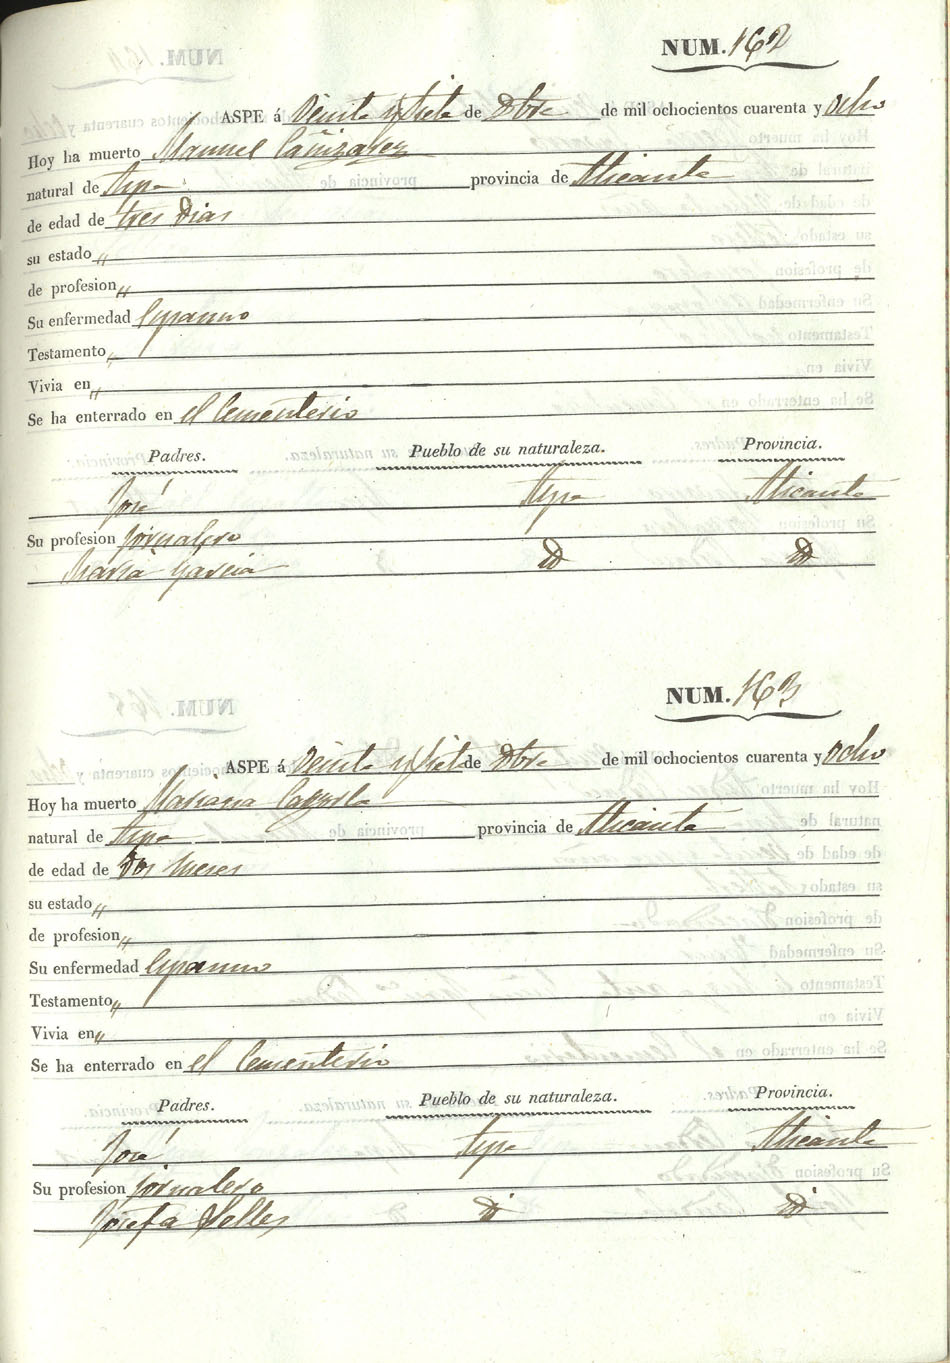 NUM. 162
ASPE á Veinte y siete de Dbre de mil ochocientos cuarenta y Ocho
Hoy ha muerto Manuel Cañizarez
natural de Aspe provincia de Alicante
de edad de tres Dias
su estado „
de profesion „
Su enfermedad Espasmo
Testamento „
Vivia en „
Se ha enterrado en el Cementerio
Padres. Pueblo de su naturaleza. Provincia.
José Aspe Alicante
Su profesion Jornalero
Maria Garcia D D
NUM. 163
ASPE á Veinte y siete de Dbre de mil ochocientos cuarenta y Ocho
Hoy ha muerto Mariana
natural de Aspe provincia de Alicante
de edad de Dos meses
su estado „
de profesion „
Su enfermedad Espasmo
Testamento „
Vivia en „
Se ha enterrado en el Cementerio
Padres. Pueblo de su naturaleza. Provincia.
José Aspe Alicante
Su profesion Jornalero
Josefa Selles D D